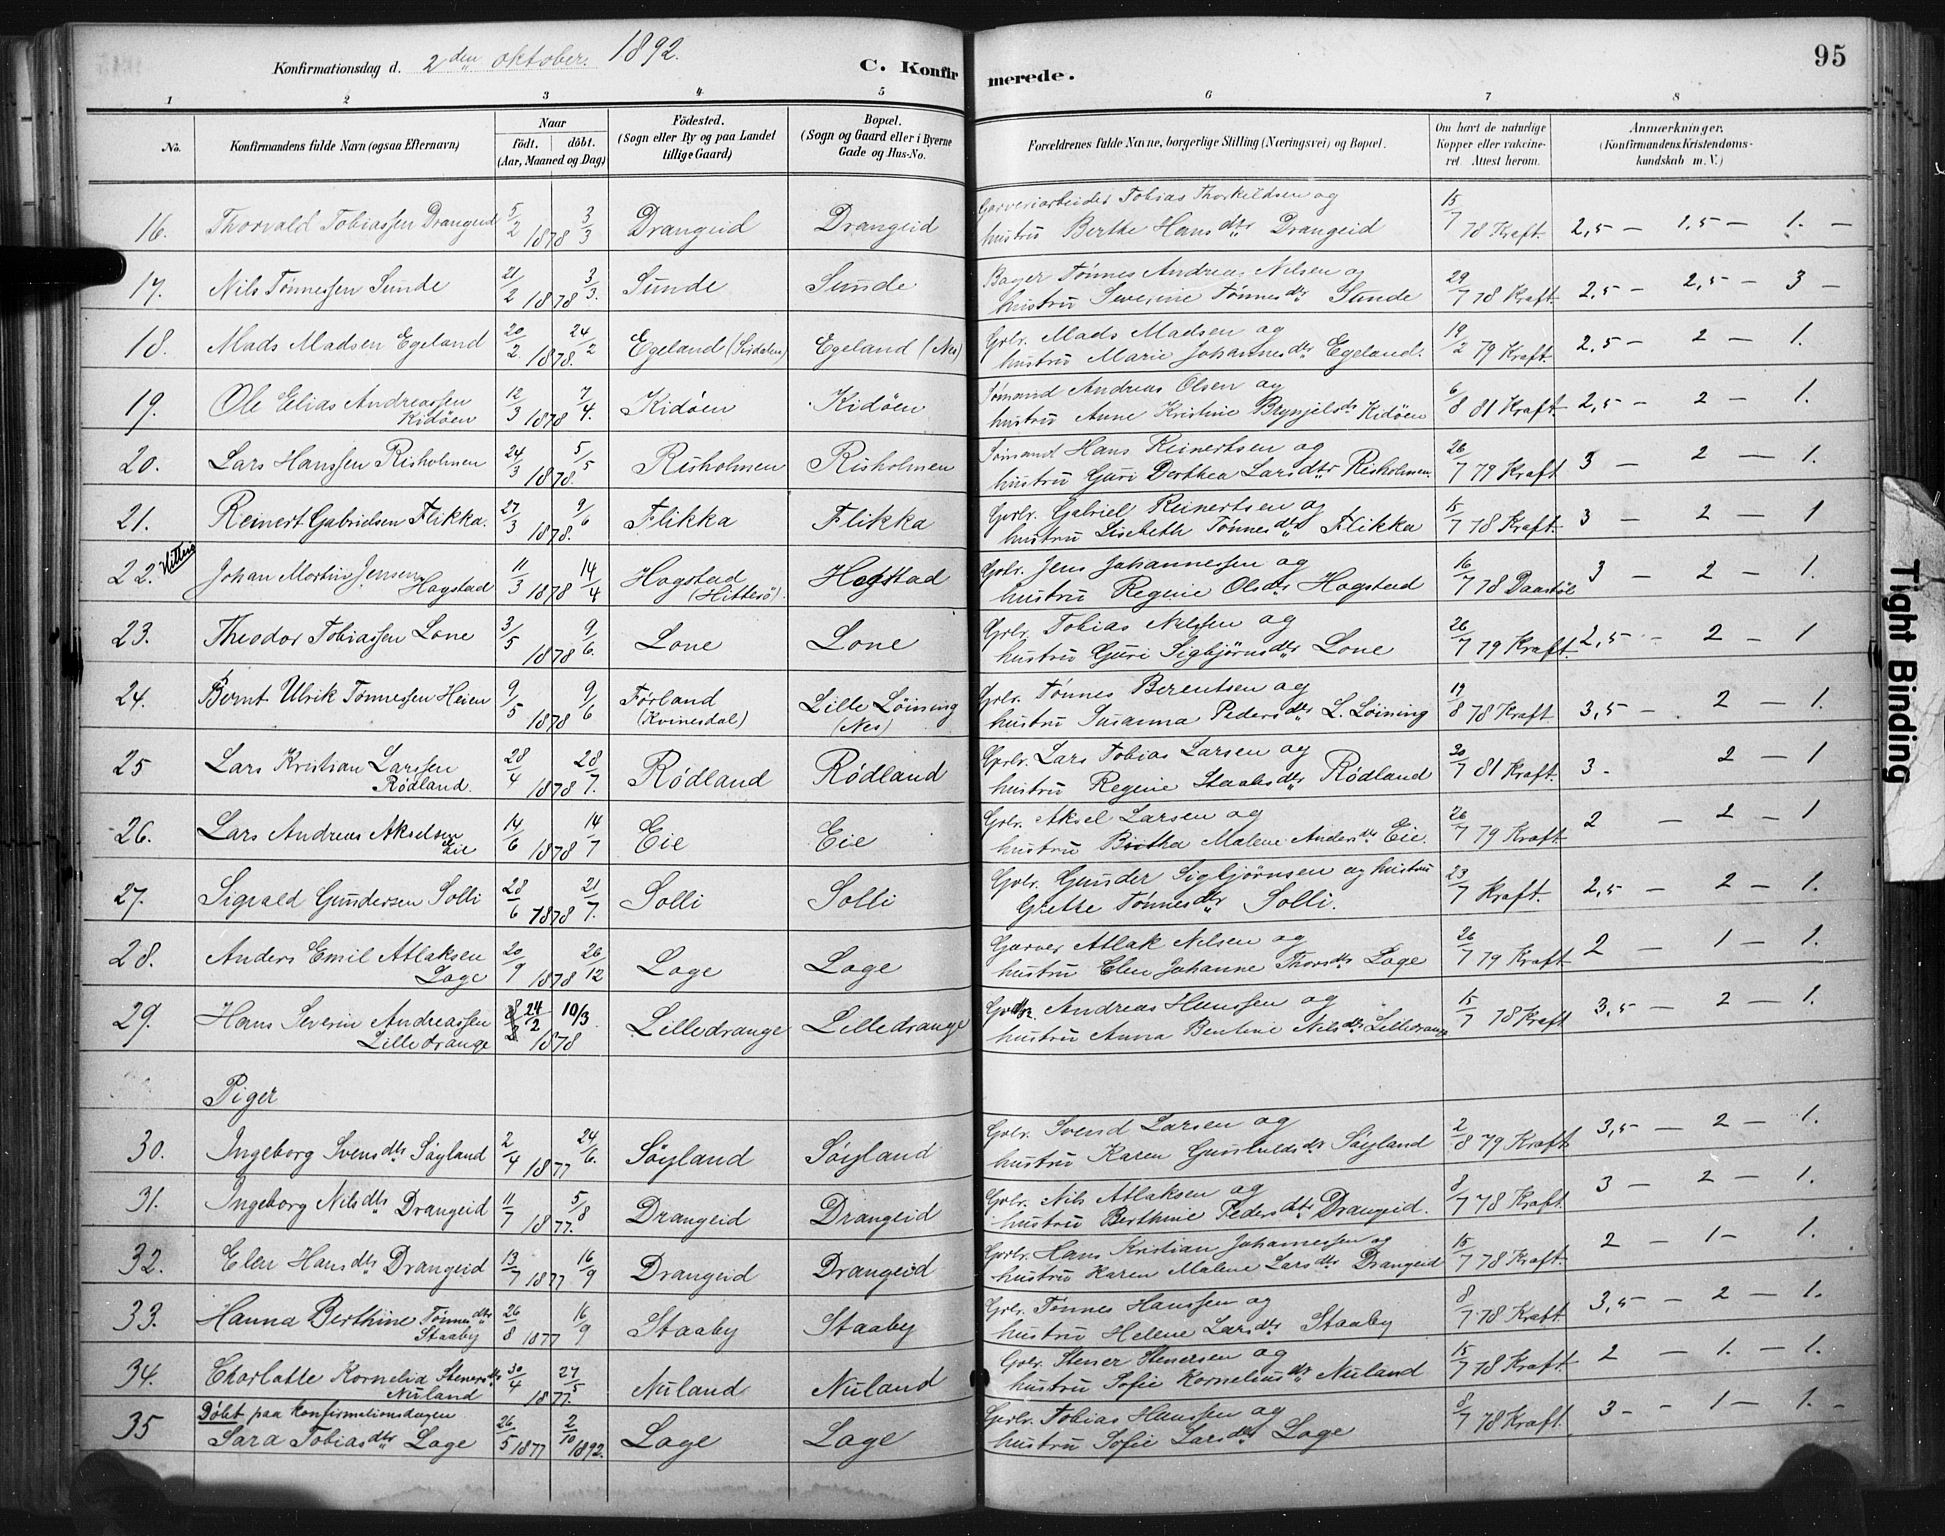 Konfirmationsdag d. 2den oktober. 1892.
C. Konfirmerede.
95
1 2 3 4 5 6 7 8
No. Konfirmandens fulde Navn (ogsaa Efternavn) Naar født. døbt. (Aar, Maaned og Dag) Fødested. (Sogn eller By og paa Landet tillige Gaard) Bopæl. (Sogn og Gaard eller i Byerne Gade og Hus-No. Forældrenes fulde Navne, borgerlige Stilling (Næringsvei) og Bopæl. Om havt de naturlige Kopper eller vakcineret. Attest herom. Anmærkninger. (Konfirmandens Kristendomskundskab m. V.)
16. Thorvald Tobiassen Drangeid 5/2 1878 3/3 Drangeid Drangeid Garveriarbeider Tobias Thorkildsen og
hustru Berthe Hansdtr Drangeid 15/7 78 Kraft. 2,5 — 1,5 — 1. —
17. Nils Tønnessen Sunde 21/2 1878 3/3. Sunde Sunde Bager Tønnes Andreas Nilsen og
hustru Severine Tønnesdtr Sunde 29/7 78 Kraft 2,5 — 2,5 — 3 —
18. Mads Madsen Egeland 20/2 1878 24/2 Egeland (Sirdalen) Egeland (Nes) Gbr. Mads Madsen og
hustru Marie Johannesdtr Egeland. 19/2 79 Kraft. 2,5 — 2 — 1.
19. Ole Elias Andreassen 12/3 1878 7/4. Kidøen Kidøen Sømand Andreas Olsen og
Kidøen hustru Anne Kristine Brynjelsdtr Kidøen 6/8 81 Kraft 2,5 — 2 — 1.
20. Lars Hanssen Risholmen 24/3 1878. 5/5 Risholmen Risholmen Sømand Hans Reinertsen og
hustru Guri Dorthea Larsdtr Risholmen. 26/7 79 Kraft 3 — 2 — 1.
21. Reinert Gabrielsen Flikka. 27/3 1878. 9/6 Flikka Flikka Gbr. Gabriel Reinertsen og
hustru Lisebeth Tønnesdtr Flikka 15/7 78 Kraft 3 — 2 — 1
22. Hitterø Johan Martin Jensen 11/3 1878 14/4 Hogstad (Hitterø). Hogstad Gbr. Jens Johannessen og
Hogstad hustru Regine Olsdtr Hogstad 16/7 78 3 — 2 — 1.
23. Theodor Tobiassen Lone 3/5 1878 9/6. Lone Lone Gbr. Tobias Nilssen og
hustru Guri Sigbjørnsdtr Lone 26/7 79 Kraft. 2,5 — 2 — 1
24. Bernt Ulrik Tønnessen Heien 9/5 1878 9/6 Førland (Kvinesdal) Lille Løining (Nes) Gbr. Tønnes Berentsen og
hustru Susanna Pedersdtr L. Løining 19/8 78 Kraft 3,5 — 2 — 1.
25 Lars Kristian Larssen 28/4 1878 28/7. Rødland Rødland Gbr. Lars Tobias Larsen og
Rødland. hustru Regine Staalesdtr Rødland 20/7 81 Kraft. 3. 2 — 1
26. Lars Andreas Akselsen 14/6 1878 14/7 Eie Eie Gbr. Aksel Larsen og
Eie hustru Birtha Malene Andersdtr Eie. 26/7 79 Kraft. 2 — 2 — 1
27. Sigvald Gundersen Solli 28/6 1878 21/7. Solli Solli Gbr. Gunder Sigbjørnsen og hustru
Grethe Tønnesdtr Solli. 23/7 Kraft. 2,5 — 2 — 1.
28. Anders Emil Atlaksen 20/9 1878 26/12 Loge Loge Garver Atlak Nilsen og
Loge hustru Elen Johanne Thorsdtr Loge 26/7 79 Kraft 2 — 1 — 1.
29. Hans Severin Andreassen 24/2 1878 10/3 Lilledrange Lilledrange Andreas Hanssen og
Lilledrange hustru Anna Bentine Nilsdtr Lilledrange 15/7 78 Kraft 3,5 — 2 — 1.
Piger
30. Ingeborg Svensdtr Søyland 2/4 1877 24/6. Søyland Søyland Gbr. Svend Larsen og
hustru Karen Gunhuldsdtr Søyland 2/8 79 Kraft 3,5 — 2 — 1.
31. Ingeborg Nilsdtr Drangeid 11/7 1877. 5/8 Drangeid Drangeid Gbr. Nils Atlaksen og
hustru Berthine Pedersdtr Drangeid. 8/7 78 Kraft. 3 — 2 — 1.
32. Elen Hansdtr Drangeid 13/7 1877 16/9 Drangeid Drangeid Gbr. Hans Kristian Johannessen og
hustru Karen Malene Larsdtr Drangeid 15/7 78 Kraft. 2 — 1 — 1.
33. Hanna Berthine Tønnesdtr 26/8 1877 16/9 Staaby Staaby Gbr. Tønnes Hanssen og
Staaby hustru Helene Larsdtr Staaby 8/7. 78 Kraft. 3,5 — 2 — 1.
34. Charlotte Kornelia Stenersdtr 30/4 1877. 27/5 Nuland Nuland Gbr. Stener Stenersen og
Nuland hustru Sofie Korneliusdtr Nuland 15/7 78 Kraft. 2 — 1. — 1.
Døbt paa Konfirmationsdagen
35 Sara Tobiasdtr Loge 26/5 1877 2/10 1892. Loge Loge Gbr. Tobias Hanssen og
hustru Sofie Larsdtr Loge 8/7 78 Kraft. 3 — 1 — 1. —
Tight Binding